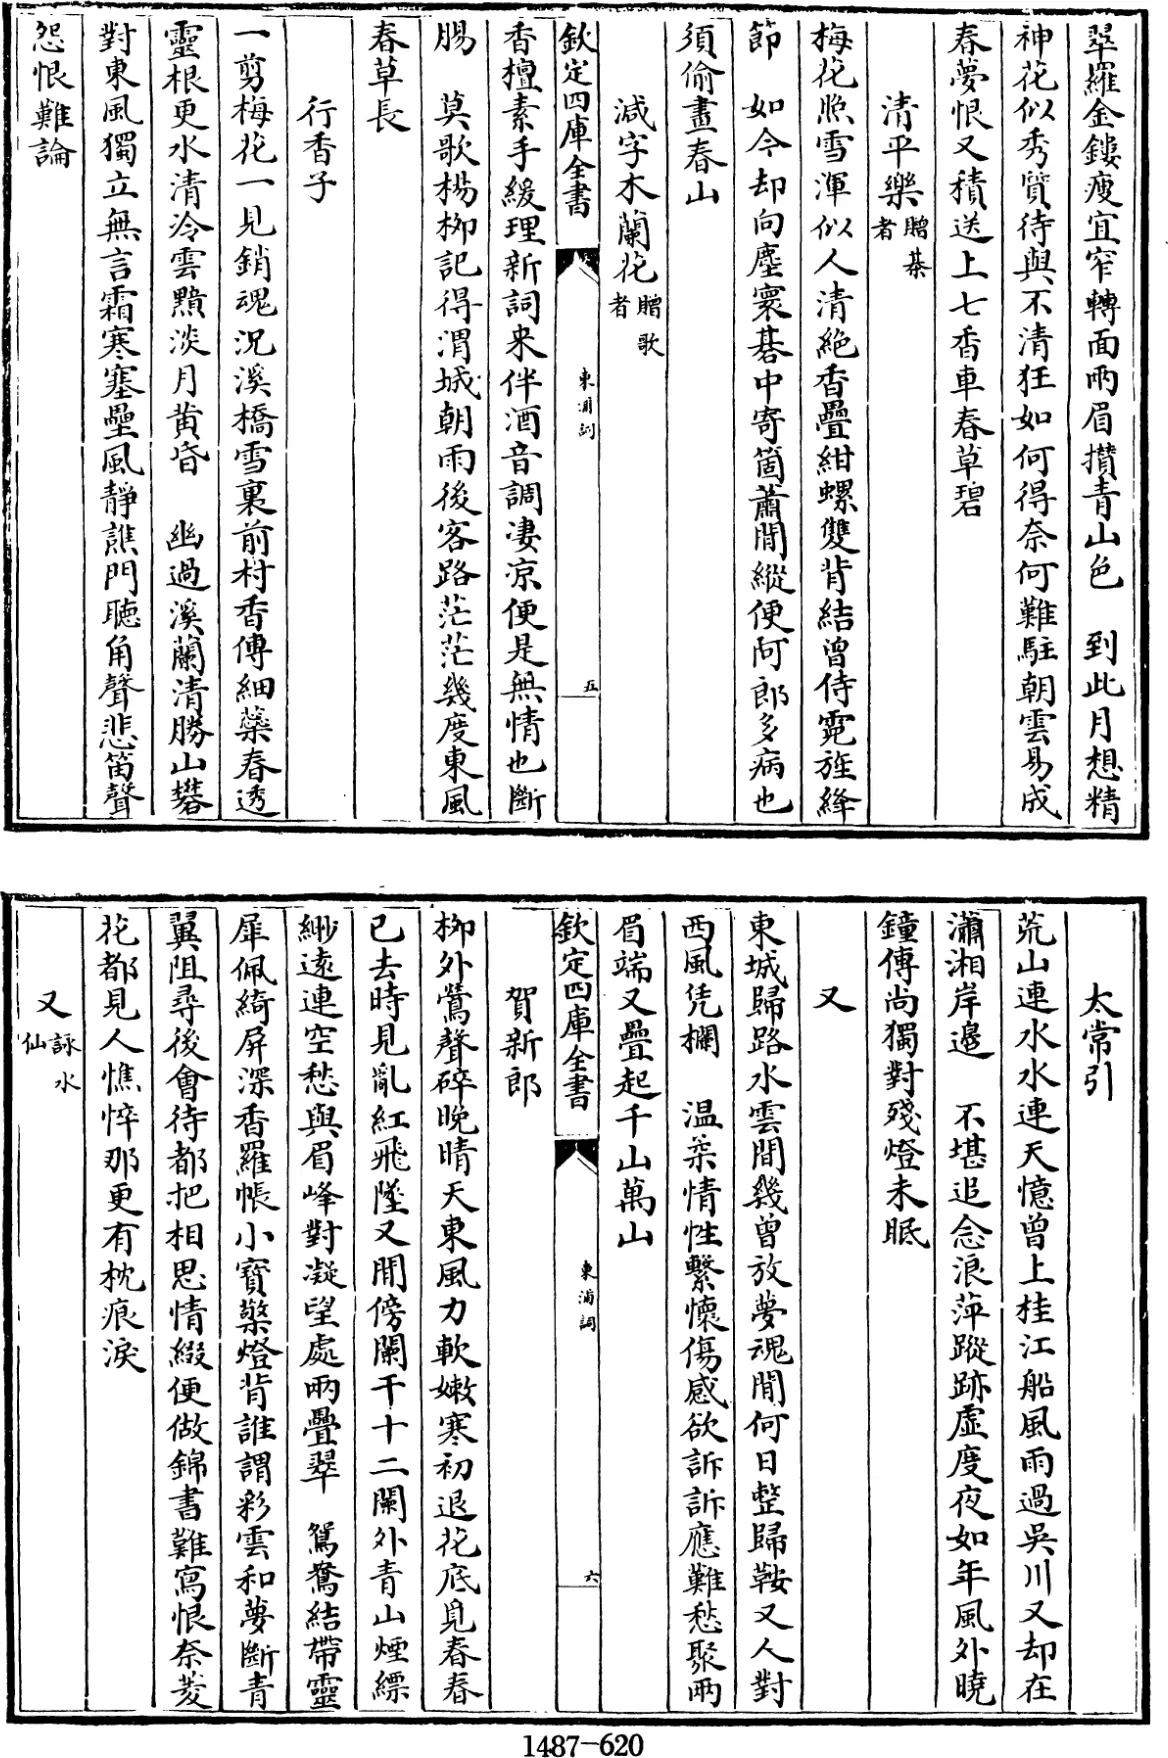 翠羅金鏤瘦宜窄轉面兩眉攢青山色　到此月想精
神花似秀質待與不清狂如何得奈何難駐朝雲易成
春夢恨又積送上七香車春草碧
清平樂贈棊者
梅花照雪渾似人清絶香疊紺螺雙背結曾侍霓旌絳
節　如今却向塵寰碁中寄箇蕭閒縱便阿郎多病也
須偷畫春山
減字木蘭花贈歌者
欽定四庫全書　東浦詞　五
香檀素手緩理新詞來伴酒音調凄凉便是無情也斷
腸　莫歌楊柳記得渭城朝雨後客路茫茫幾度東風
春草長
行香子
一剪梅花一見銷魂況溪橋雪裏前村香傳細蘂春透
靈根更水清冷雲黯淡月黄昏　幽過溪蘭清勝山礬
對東風獨立無言霜寒塞壘風靜譙門聽角聲悲笛聲
怨恨難論
太常引
荒山連水水連天憶曾上桂江船風雨過吳川又却在
瀟湘岸邊　不堪追念浪萍蹤跡虚度夜如年風外曉
鐘傳尚獨對殘燈未眠
又
東城歸路水雲間幾曾放夢魂閒何日整歸鞍又人對
西風凭欄　温柔情性繫懷傷感欲訴訴應難愁聚兩
眉端又疊起千山萬山
欽定四庫全書　東浦詞　六
賀新郎
柳外鶯聲碎晩晴天東風力軟嫩寒初退花底覓春春
已去時見亂紅飛墜又閒傍闌干十二闌外青山煙縹
緲遠連空愁與眉峰對凝望處兩疊翠　鴛鴦結帶靈
犀佩綺屏深香羅帳小寳檠燈背誰謂彩雲和夢斷青
翼阻尋後會待都把相思情綴便做錦書難寫恨奈菱
花都見人憔悴那更有枕痕淚
又詠水仙
1487-620